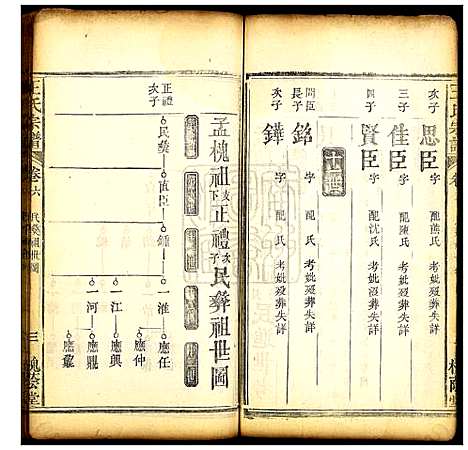 王氏宗譜
卷
次子
思臣
字
配蕭氏
考妣歿葬失詳
三子
佳臣
字
配陳氏
考妣歿葬失詳
四子
賢臣
字
配沈氏
考妣歿葬失詳
長子
銘
字
配
氏
考妣歿葬失詳
次子
鏵
字
配
氏
考妣歿葬失詳
孟槐祖支下正禮次子民彝祖世圖
正禮次子
民彝
直臣
鍾
淮
應任
應仲
江
應興
河
應龍
王氏宗譜
卷六
民彝祖世圖
三
槐蔭堂